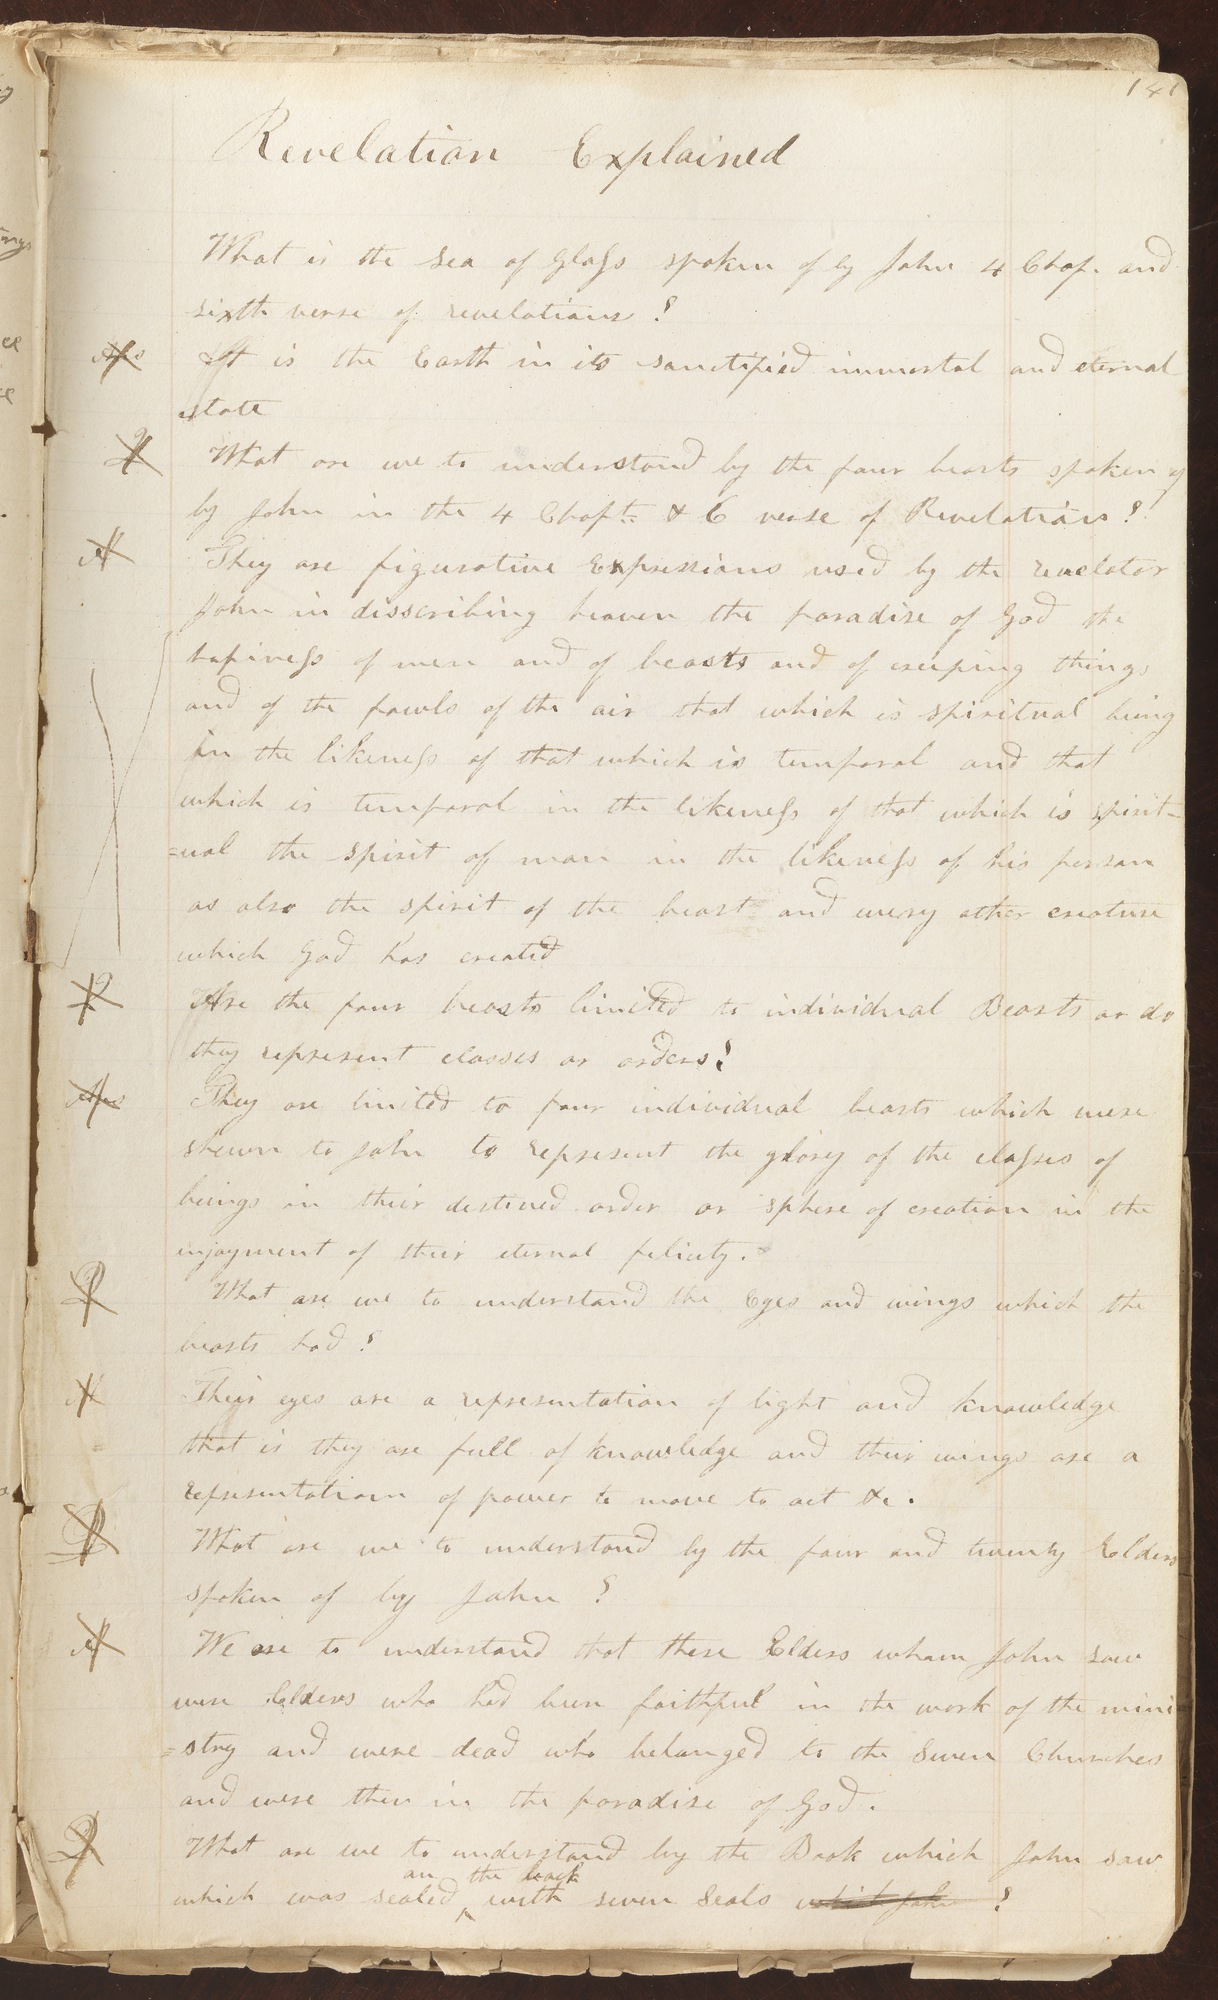 141
Revelation Explained
What is the sea of Glass spoken of by John 4 Chap. and
sixth verse of revelations?
Ans It is the Earth in its sanctified immortal and eternal
state
Q What are we to understand by the four beasts spoken of
by John in the 4 Chapt. & 6 verse of Revelations?
A They are figurative Expressions used by the revelator
John in disscribing heaven the paradise of God the
hapiness of men and of beasts and of creeping things
and of the fowls of the air that which is spiritual being
in the likeness of that which is temporal and that
which is temporal in the likeness of that which is spirit=
=ual the spirit of man in the likeness of his person
as also the spirit of the beast and every other creature
which God has created
Q Are the four beasts limited to individual Beasts or do
they represent classes or orders?
Ans They are limited to four individual beasts which were
shewn to John to represent the glory of the classes of
beings in their destined order or sphere of creation in the
injoyment of their eternal felicity.
Q What are we to understand the Eyes and wings which the
beasts had?
A Their eyes are a representation of light and knowledge
that is they are full of knowledge and their wings are a
representation of power to move to act &c.
Q What are we to understand by the four and twenty Elders
spoken of by John?
A We are to understand that these Elders whom John saw
were Elders who had been faithful in the work of the mini
=stry and were dead who belonged to the Seven Churches
and were then in the paradise of God.
Q What are we to understand by the Book which John saw
on the back
which was sealed with seven Seals which John ?